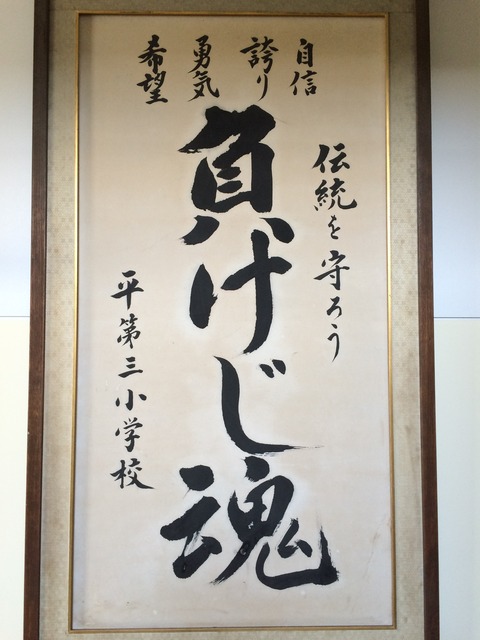 自信
誇り
勇気
希望
伝統を守ろう
負けじ魂
平第三小学校